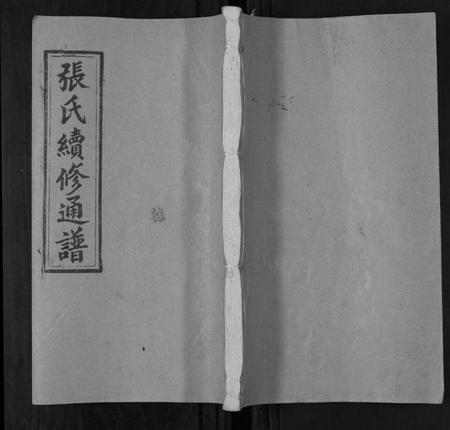 張氏續修通譜